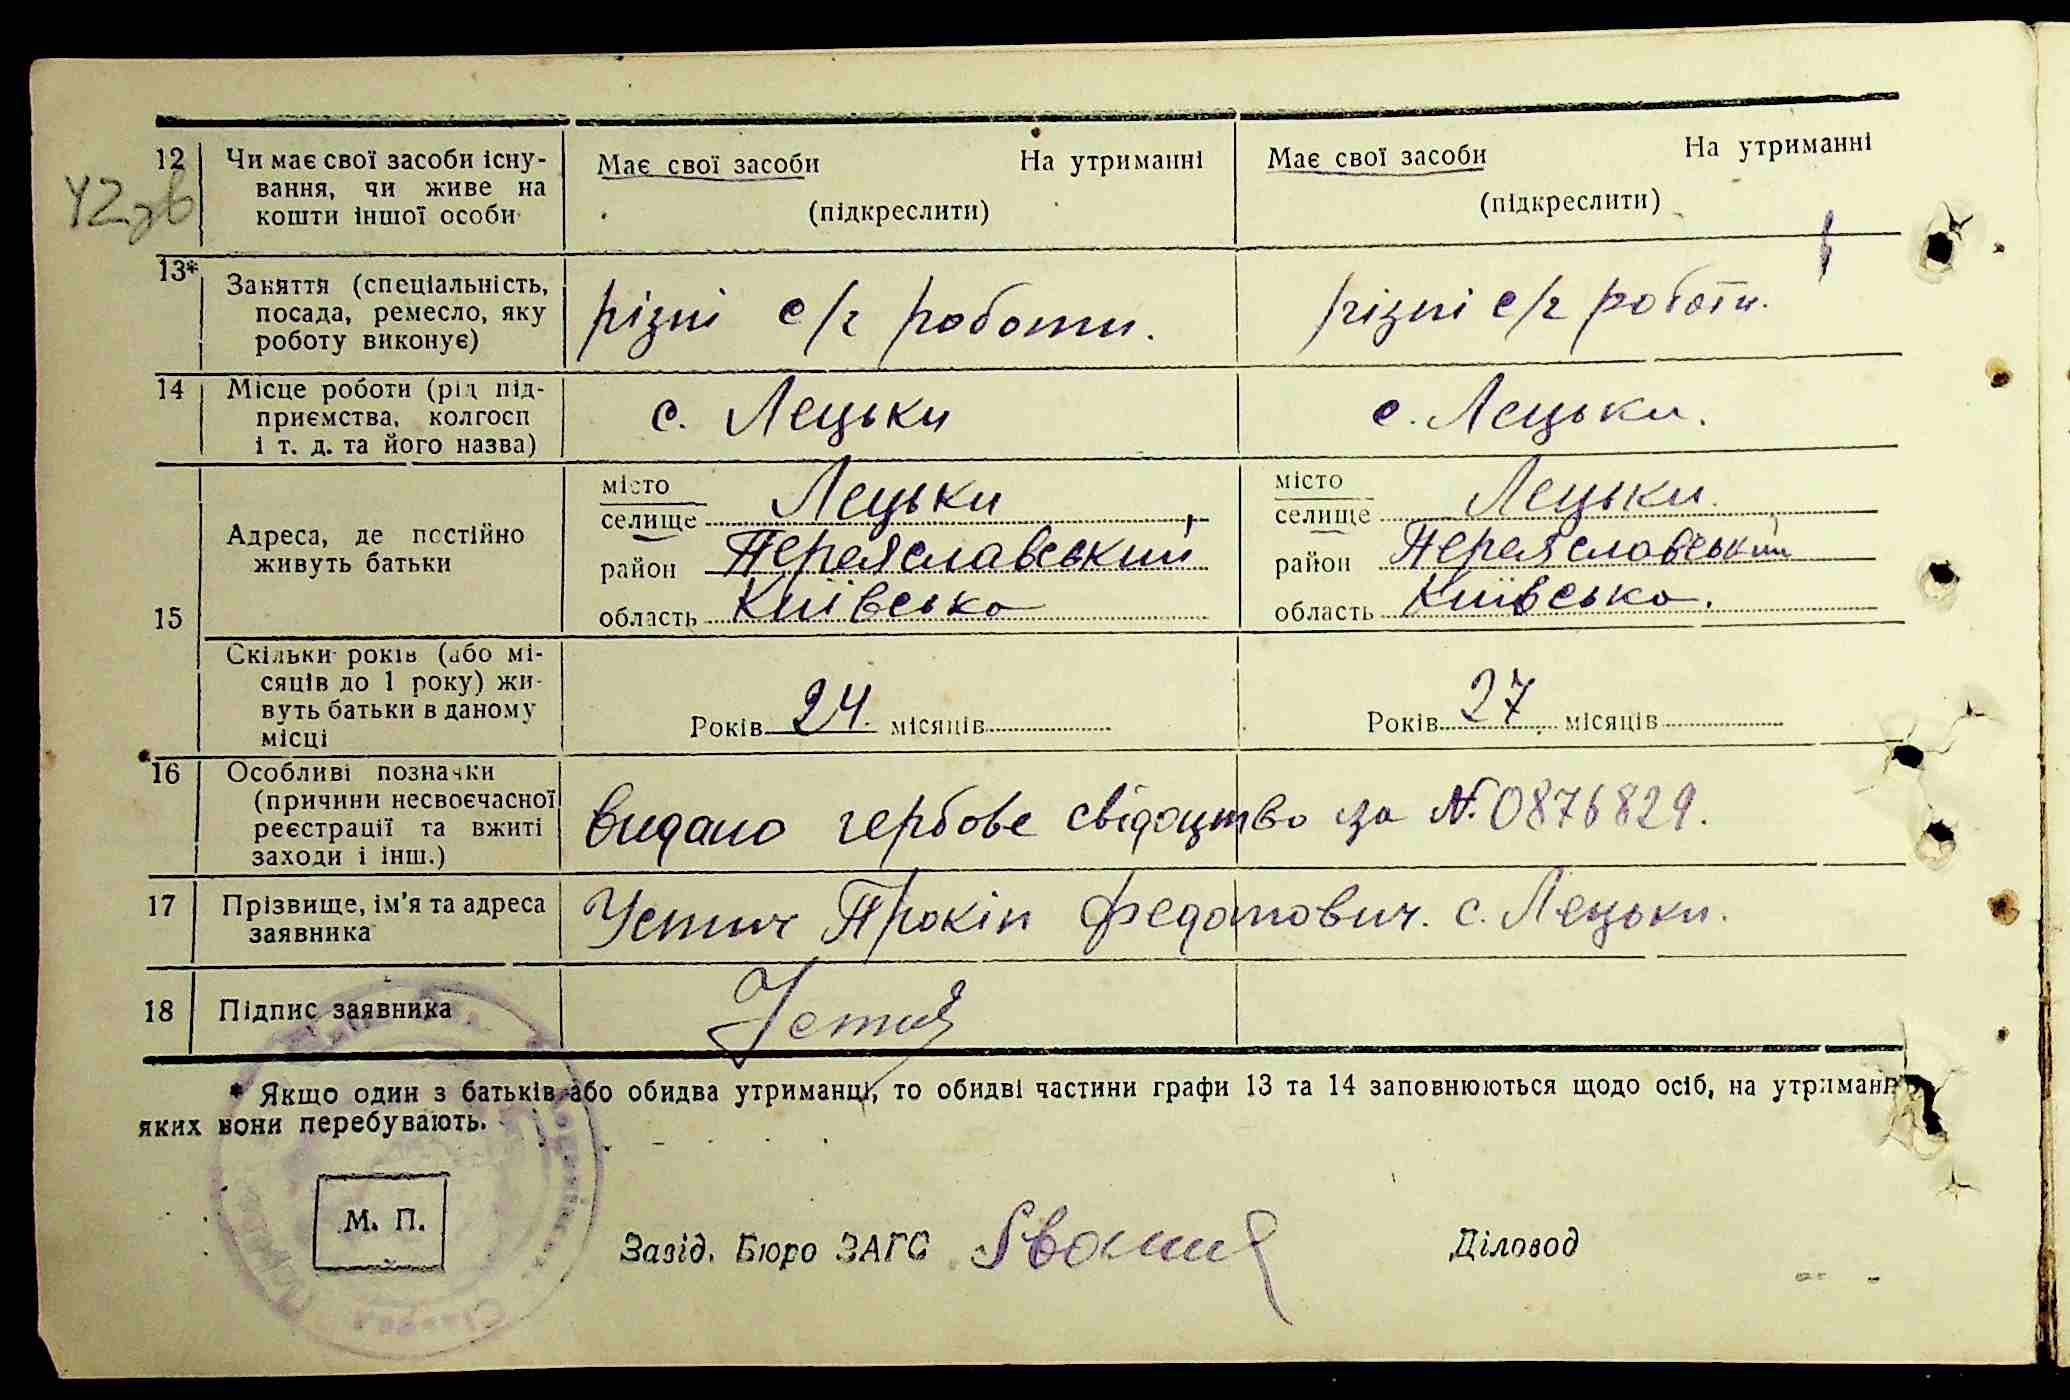 12 Чи має свої засоби існу-
вання, чи живе на
кошти іншої особи
Має свої засоби На утриманні
(підкреслити)
Має свої засоби На утриманні
(підкреслити)
13* Заняття (спеціальність,
посада, ремесло, яку
роботу виконує)
різні с/г роботи.
різні с/г роботи.
14 Місце роботи (рід під-
приємства, колгосп
і т. д. та його назва)
с. Лецьки
с. Лецьки.
15 Адреса, де постійно
живуть батьки
місто
селище Лецьки,
район Переяславський
область Київська
місто
селище Лецьки,
район Переяславський
область Київська.
Скільки років (або мі-
сяців до 1 року) жи-
вуть батьки в даному
місці
Років 24. місяців
Років 27 місяців
16 Особливі позначки
(причини несвоєчасної
реєстрації та вжиті
заходи і інш.)
видано гербове свідоцтво за №0876829.
17 Прізвище, ім'я та адреса
заявника
Устич Прокіп Федотович. с. Лецьки.
18 Підпис заявника
* Якщо один з батьків або обидва утриманці, то обидві частини графи 13 та 14 заповнюються щодо осіб, на утриманні
яких вони перебувають.
М. П.
Завід. Бюро ЗАГС
Діловод